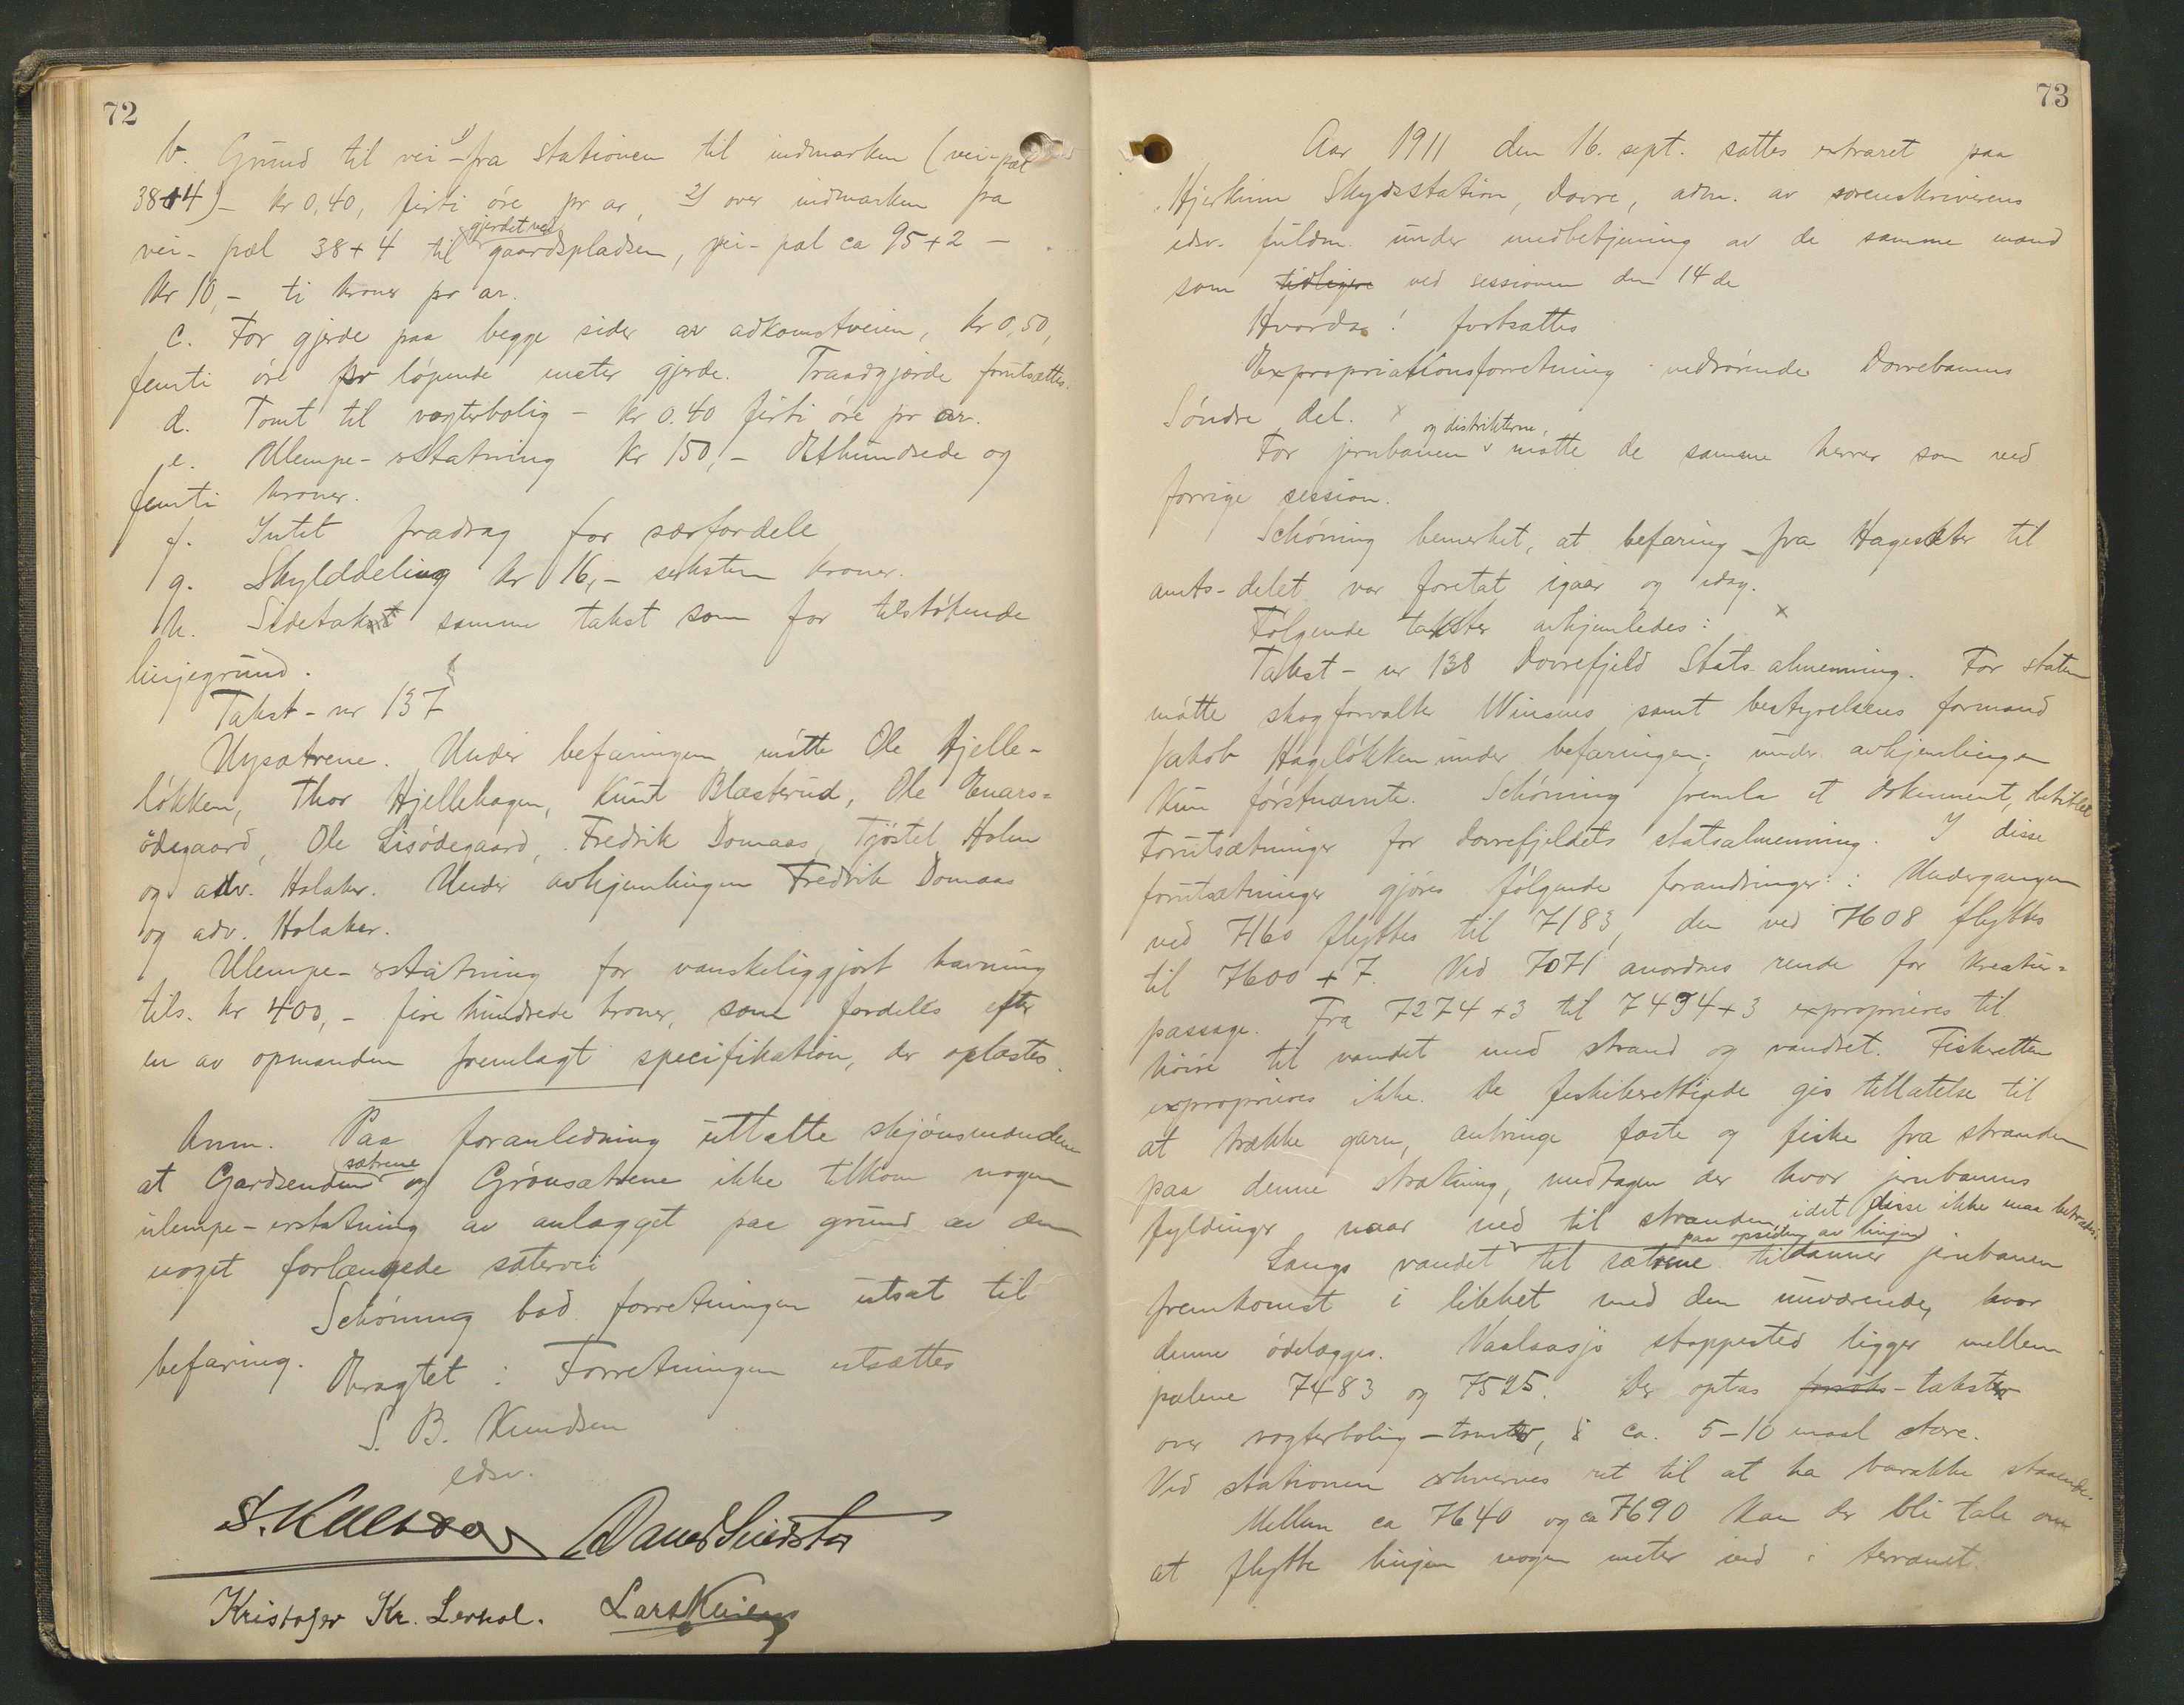 72
b. Grund til vei 1) fra stationen til indmarken (vei-pæl
38+4) – kr 0,40, firti øre pr ar, 2) over indmarken fra
vei-pæl 38+4 til gjerdet ved gaardspladsen, vei-pæl ca 95+2 –
kr 10,- ti kroner pr ar.
c. For gjerde paa begge sider av adkomstveien, kr 0,50,
femti øre pr løpende meter gjerde. Traadgjærde forutsættes.
d. Tomt til vogterbolig – kr 0.40 firti øre pr ar.
e. Ulempe-erstatning kr 150,- Ethundrede og
femti kroner.
f. Intet fradrag for særfordele
g. Skylddeling kr 16,- seksten kroner.
h. Sidetakst samme takst som for tilstøtende
linjegrund.
Takst-nr 137
Nysætrene. Under befaringen møtte Ole Hjelle-
løkken, Thor Hjellehagen, Knut Blæsterud, Ole Einars-
ødegaard, Ole Lisødegaard, Fredrik Domaas, Tjøstel Holm
og adv. Holaker. Under avhjemlingen Fredrik Domaas
og adv. Holaker.
Ulempe-erstatning for vanskeliggjort havning
tils. kr 400,- fire hundrede kroner, som fordeles efter
en av opmanden fremlagt specifikation, der oplæstes.
Anm. Paa foranledning uttalte skjønsmændene
at Gardsendensætrene og Grønsætrene ikke tilkom nogen
ulempe-erstatning av anlægget paa grund av den
noget forlængede sætervei
Schøning bad forretningen utsat til
befaring.
Eragtet: Forretningen utsættes
S. B. Knudsen
edsv.
Kristofer Kr. Lerhol.
73
Aar 1911 den 16. sept. sattes extraret paa
Hjerkinn Skydsstation, Dovre, adm. av sorenskriverens
edsv. fuldm. under medbetjening av de samme mænd
som tidligere ved sessionen den 14 de
Hvorda! fortsattes
Expropriationsforretning vedrørende Dovrebanens
Søndre del.
For jernbanen og distrikterne, møtte de samme herrer som ved
forrige session.
Schøning bemerket, at befaring fra Hageseter til
amts-delet var foretat igaar og idag.
Følgende takster avhjemledes:
Takst-nr 138 Dovrefjeld Stats-almenning. For staten
møtte skogforvalter Winsnes samt bestyrelsens formand
Jakob Hageløkken under befaringen; under avhjemlingen
kun førstnævnte. Schøning fremla et dokument, betitlet
Forutsætninger for Dovrefjeldets statsalmenning. I disse
forutsætninger gjøres følgende forandringer: Undergangen
ved 7160 flyttes til 7183, den ved 7608 flyttes
til 7600+7. Ved 7071 anordnes rende for kreatur-
passage. Fra 7274+3 til 7494+3 exproprieres til
høire til vandet med strand og vandret. Fiskeretten
exproprieres ikke. De fiskeberettigede gis tillatelse til
at trække garn, anbringe fæste og fiske fra stranden
paa denne strækning, undtagen der hvor jernbanens
fyldinger naar ned til stranden, idet disse ikke maa betrædes.
Langs vandet til sætrene paa opsiden av linjen tildanner jernbanen
fremkomst i likhet med den nuværende, hvor
denne ødelægges. Vaalaasjø stoppested ligger mellem
pælene 7483 og 7525. Der optas forsøks-takster
over vogterbolig-tomter, à ca. 5–10 maal store.
Ved stationen erhverves ret til at ha barakke staaende.
Mellem ca 7640 og ca 7690 kan der bli tale om
at flytte linjen nogen meter ind i terrænet.